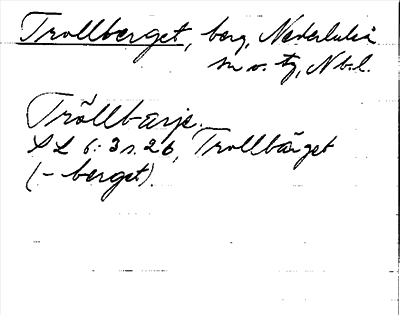 Trollberget, berg, Nederluleå
sn o. tg, Nbl.
Tröllbärje.
SL 6:3 s. 26, Trollbärget
(-berget).